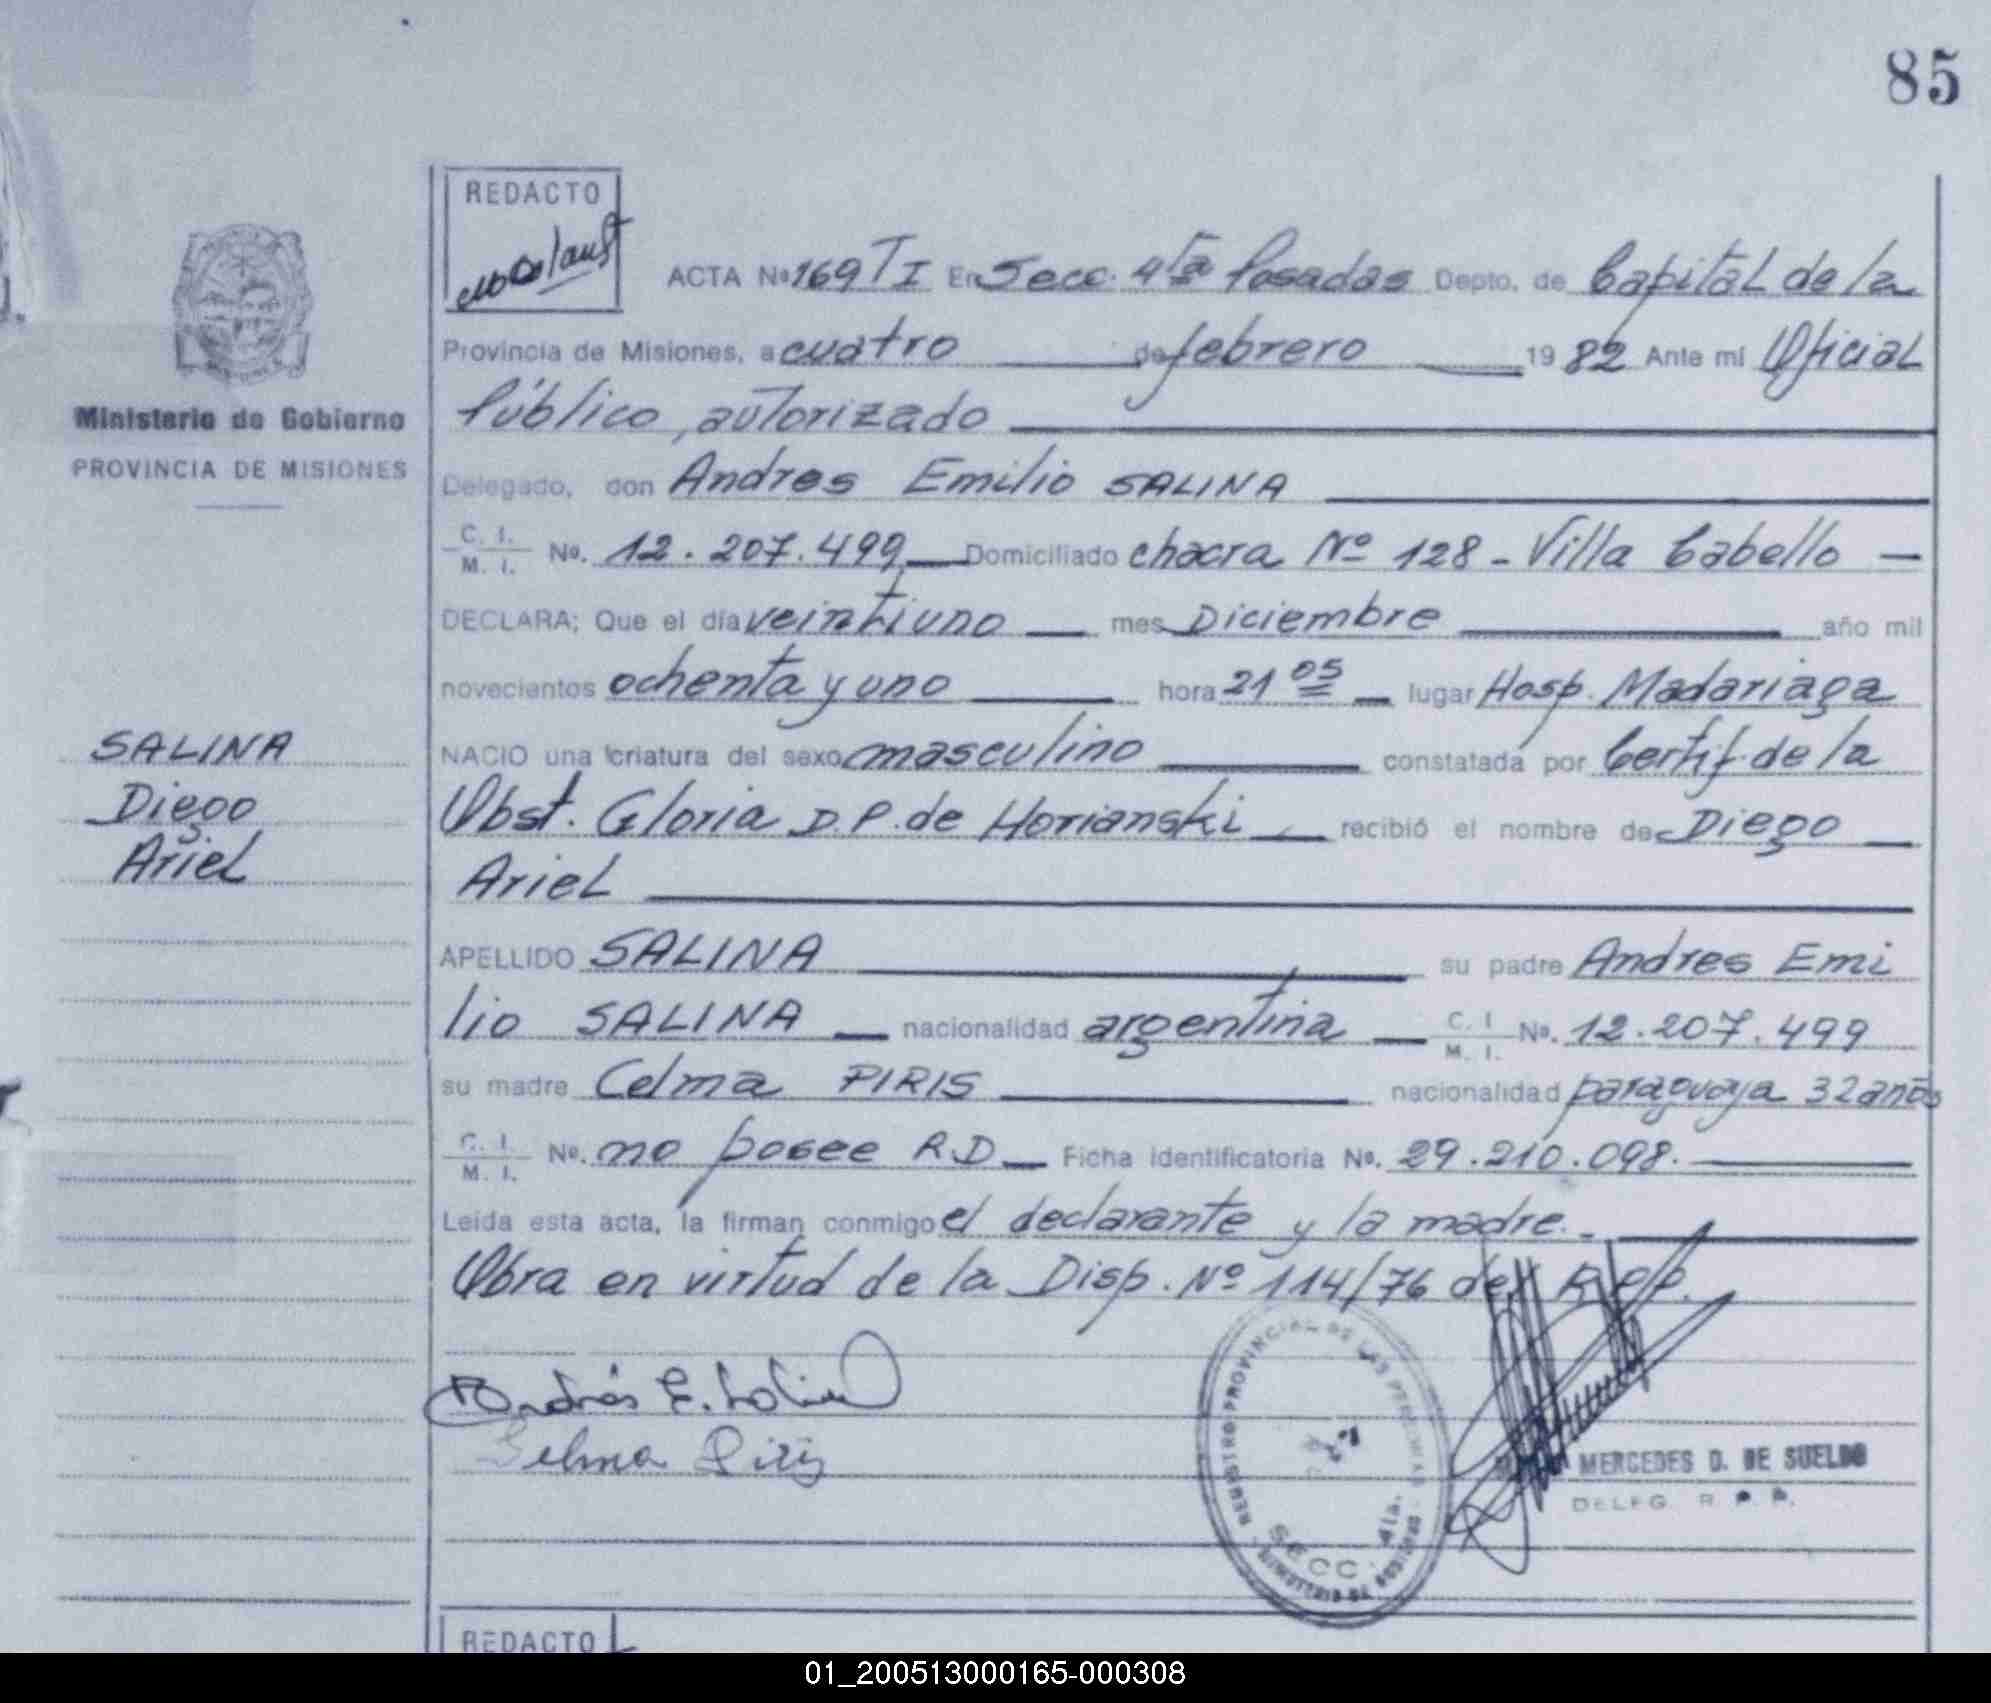 85
REDACTO
ACTA Nº 169 T I En Secc. 4ta Posadas Depto. de Capital de la
Provincia de Misiones, a cuatro de febrero 1982 Ante mí Oficial
Público, autorizado
Delegado, don Andres Emilio SALINA
C. I. / M. I. Nº. 12.207.499 Domiciliado chacra Nº 128 - Villa Cabello
DECLARA; Que el día veintiuno mes Diciembre año mil
novecientos ochenta y uno hora 21 05 lugar Hosp. Madariaga
NACIO una criatura del sexo masculino constatada por Certif. de la
Obst. Gloria D.P. de Horianski recibió el nombre de Diego
Ariel
APELLIDO SALINA su padre Andres Emi
lio SALINA nacionalidad argentina C. I / M. I. Nº. 12.207.499
su madre Celma PIRIS nacionalidad paraguaya 32 años
C. I. / M. I. Nº. no posee R.D Ficha Identificatoria Nº. 29.210.098.
Leída esta acta, la firman conmigo el declarante y la madre.-
Obra en virtud de la Disp. Nº 114/76 del R.P.P.
Andrés E. Salina
Selma Piris
REGISTRO PROVINCIAL DE LAS PERSONAS
SECC. 4ta.
MINISTERIO DE GOBIERNO
MERCEDES D. DE SUELDO
DELEG. R. P. P.
REDACTO
Ministerio de Gobierno
PROVINCIA DE MISIONES
SALINA
Diego
Ariel
01_200513000165-000308